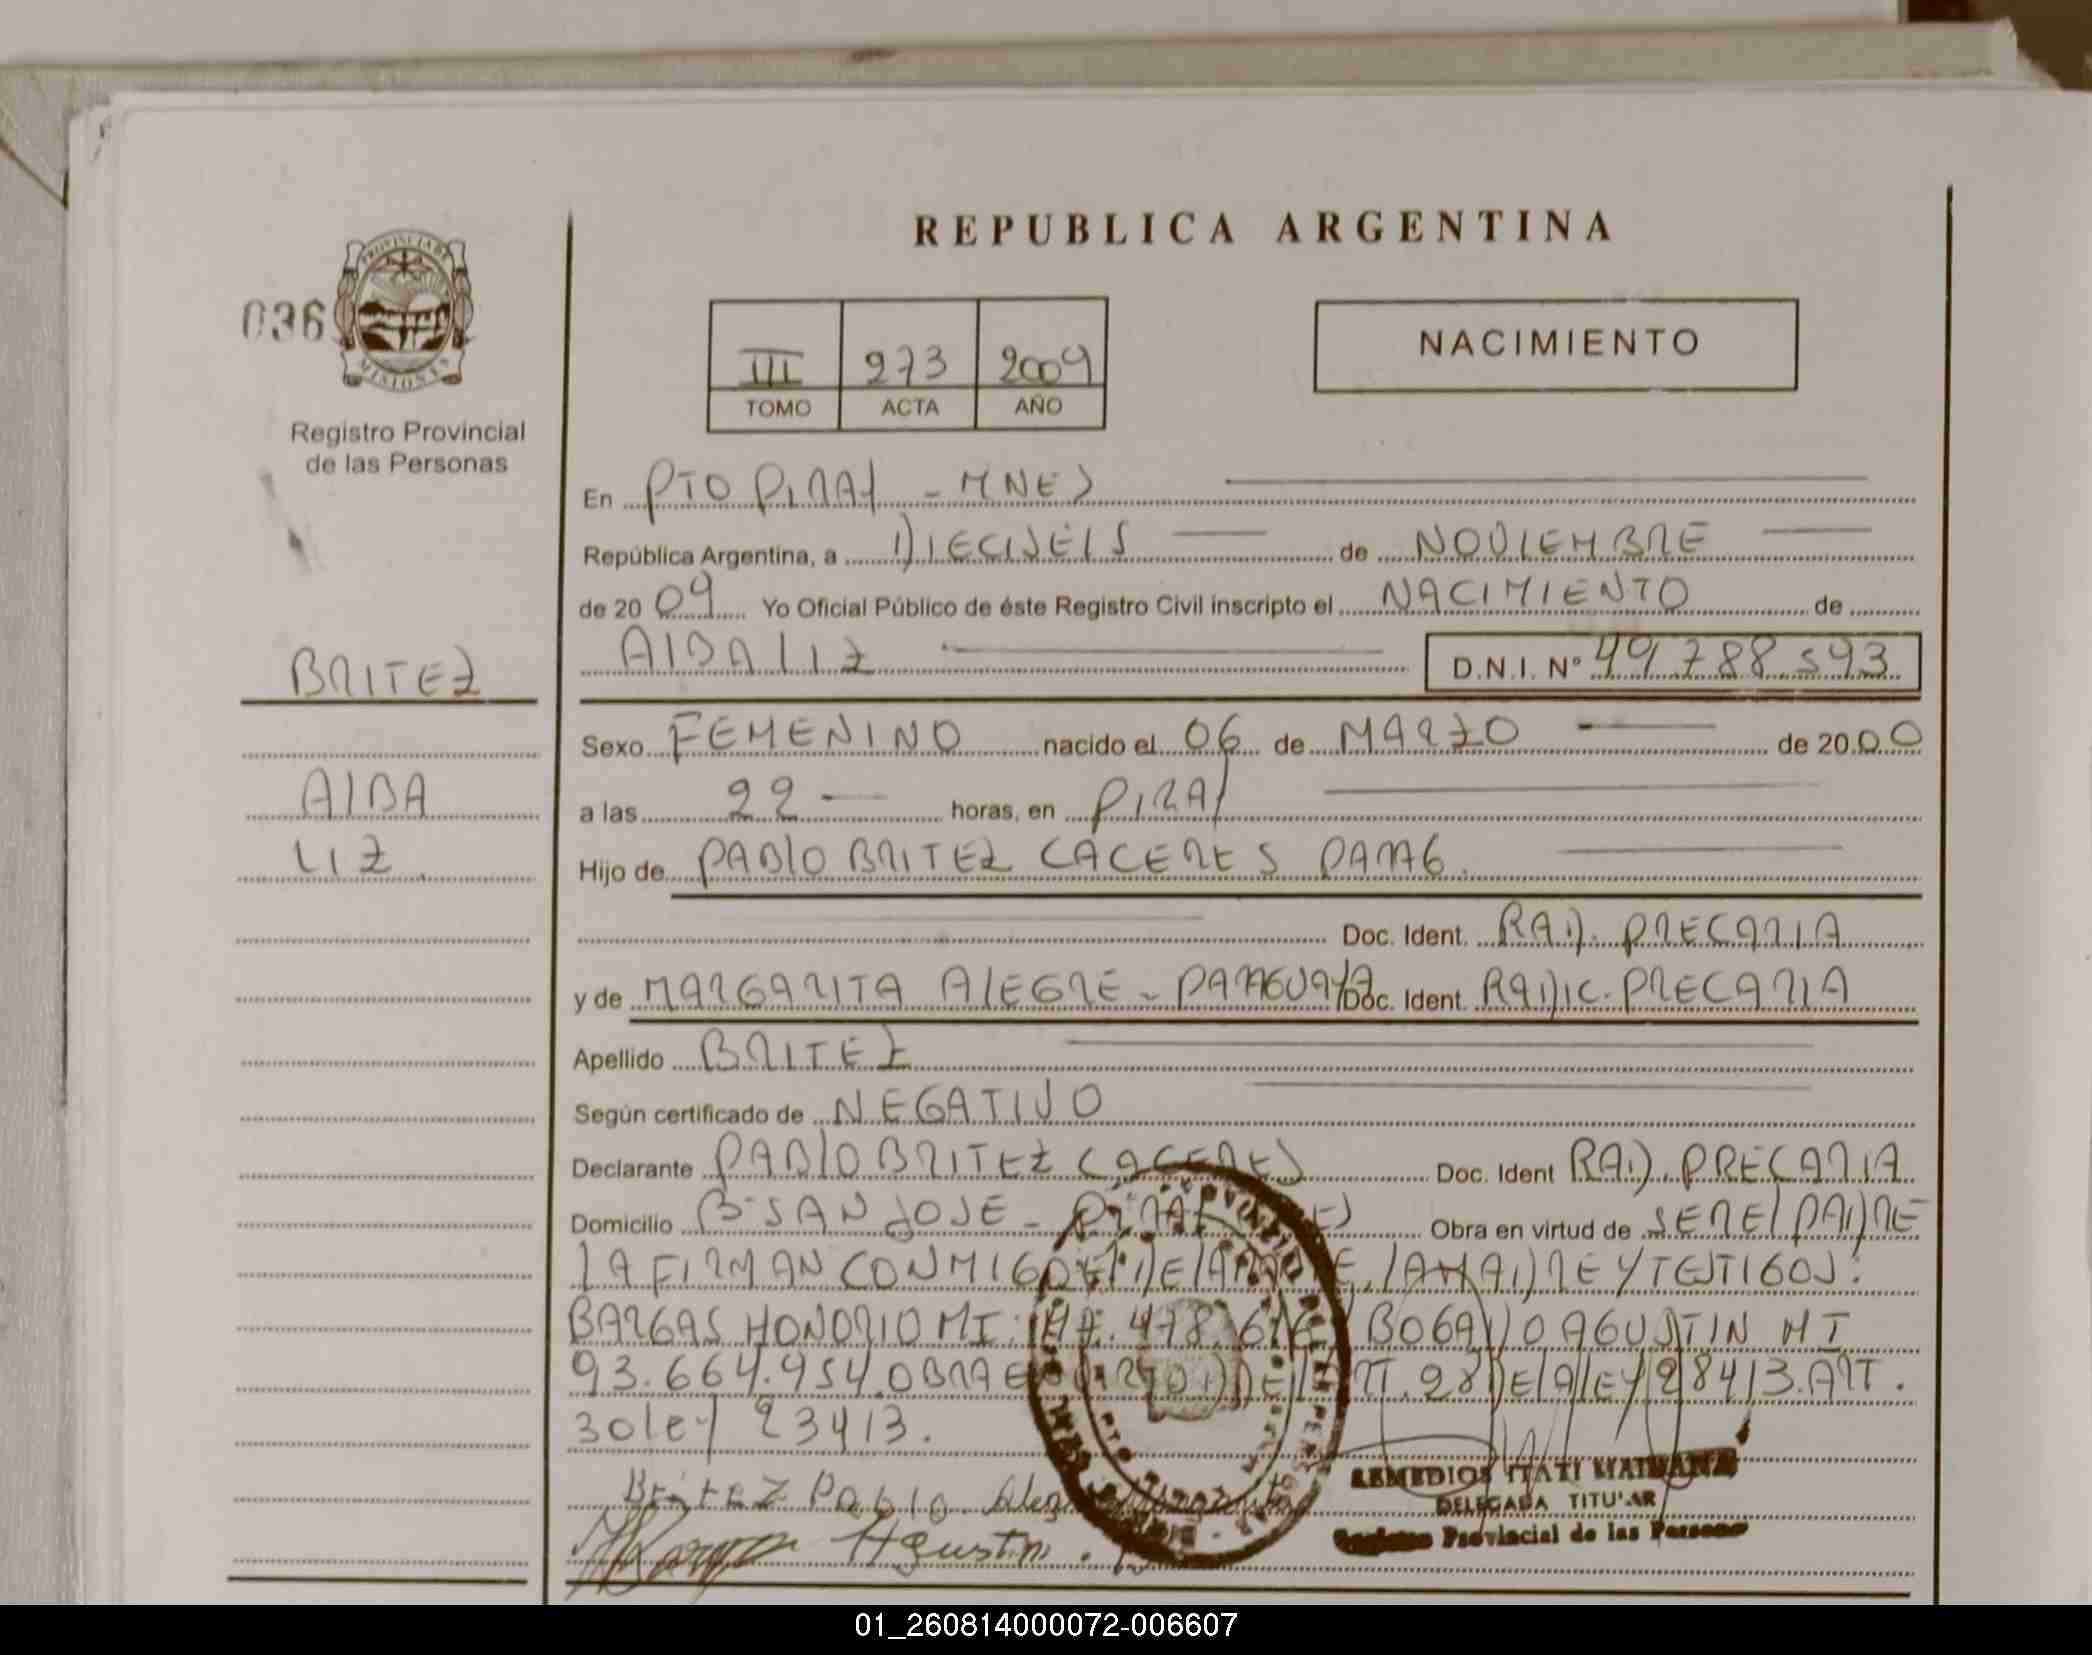 REPUBLICA ARGENTINA
036
PROVINCIA DE
MISIONES
Registro Provincial
de las Personas
III 273 2009
TOMO ACTA AÑO
NACIMIENTO
En PTO PIRAY - MNES
República Argentina, a DIECISEIS de NOVIEMBRE
de 2009 Yo Oficial Público de éste Registro Civil inscripto el NACIMIENTO de
AlBA LIZ D.N.I. Nº 49.788.593
BRITEZ
AlBA
LIZ
Sexo FEMENINO nacido el 06 de MARZO de 2000
a las 22 horas, en PIRAY
Hijo de PABlO BRITEZ CACERES PARAG.
Doc. Ident. RAD. PRECARIA
y de MARGARITA AlEGRE - PARAGUAYA Doc. Ident. RADIC. PRECARIA
Apellido BRITEZ
Según certificado de NEGATIVO
Declarante PABlO BRITEZ CACERES Doc. Ident RAD. PRECARIA
Domicilio Bº SAN JOSE - PIRAY Obra en virtud de SER El PADRE
lA FIRMAN CONMIGO lA MADRE Y TESTIGOS:
BARGAS HONORIO MI: 478. BOGADO AGUSTIN MI
93.664.954. OBRA ART. 28 DE lA lEY 28413. ART.
30 ley 23413.
Britez Pablo
Agustin
REMEDIOS ITATI
DELEGADA TITULAR
Registro Provincial de las Personas
01_260814000072-006607